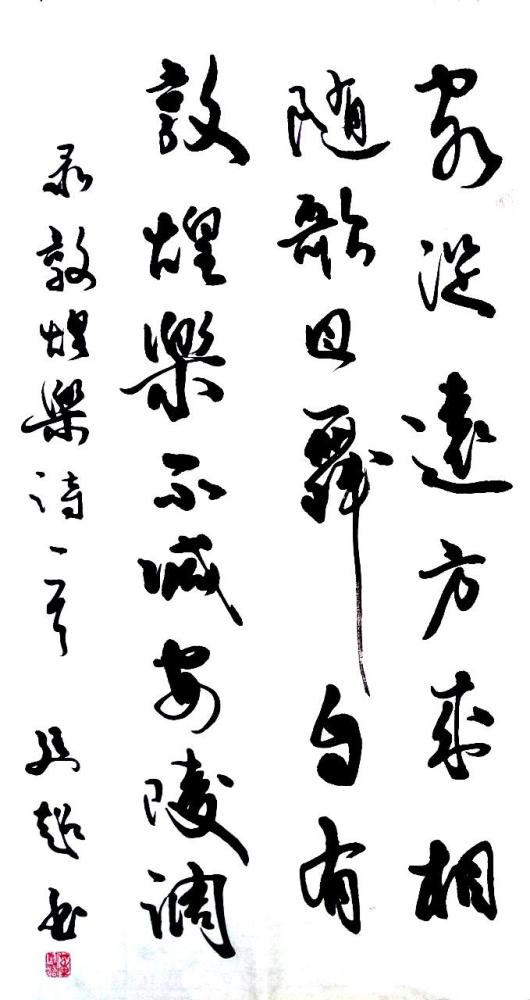 客從遠方来相
随歌且舞自有
敦煌樂不減安陵調
录敦煌樂诗一首 超书